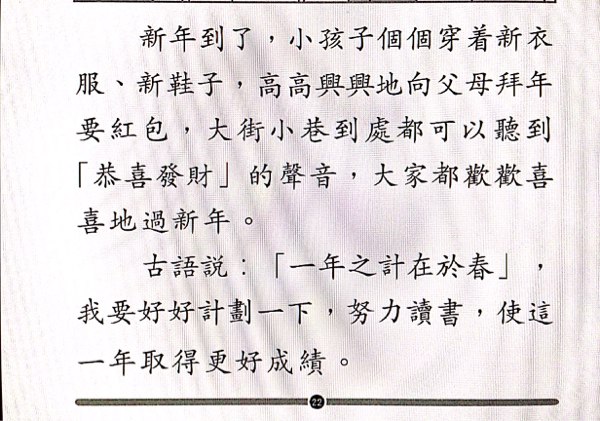 新年到了，小孩子個個穿着新衣
服、新鞋子，高高興興地向父母拜年
要紅包，大街小巷到處都可以聽到
「恭喜發財」的聲音，大家都歡歡喜
喜地過新年。
古語説：「一年之計在於春」，
我要好好計劃一下，努力讀書，使這
一年取得更好成績。
22